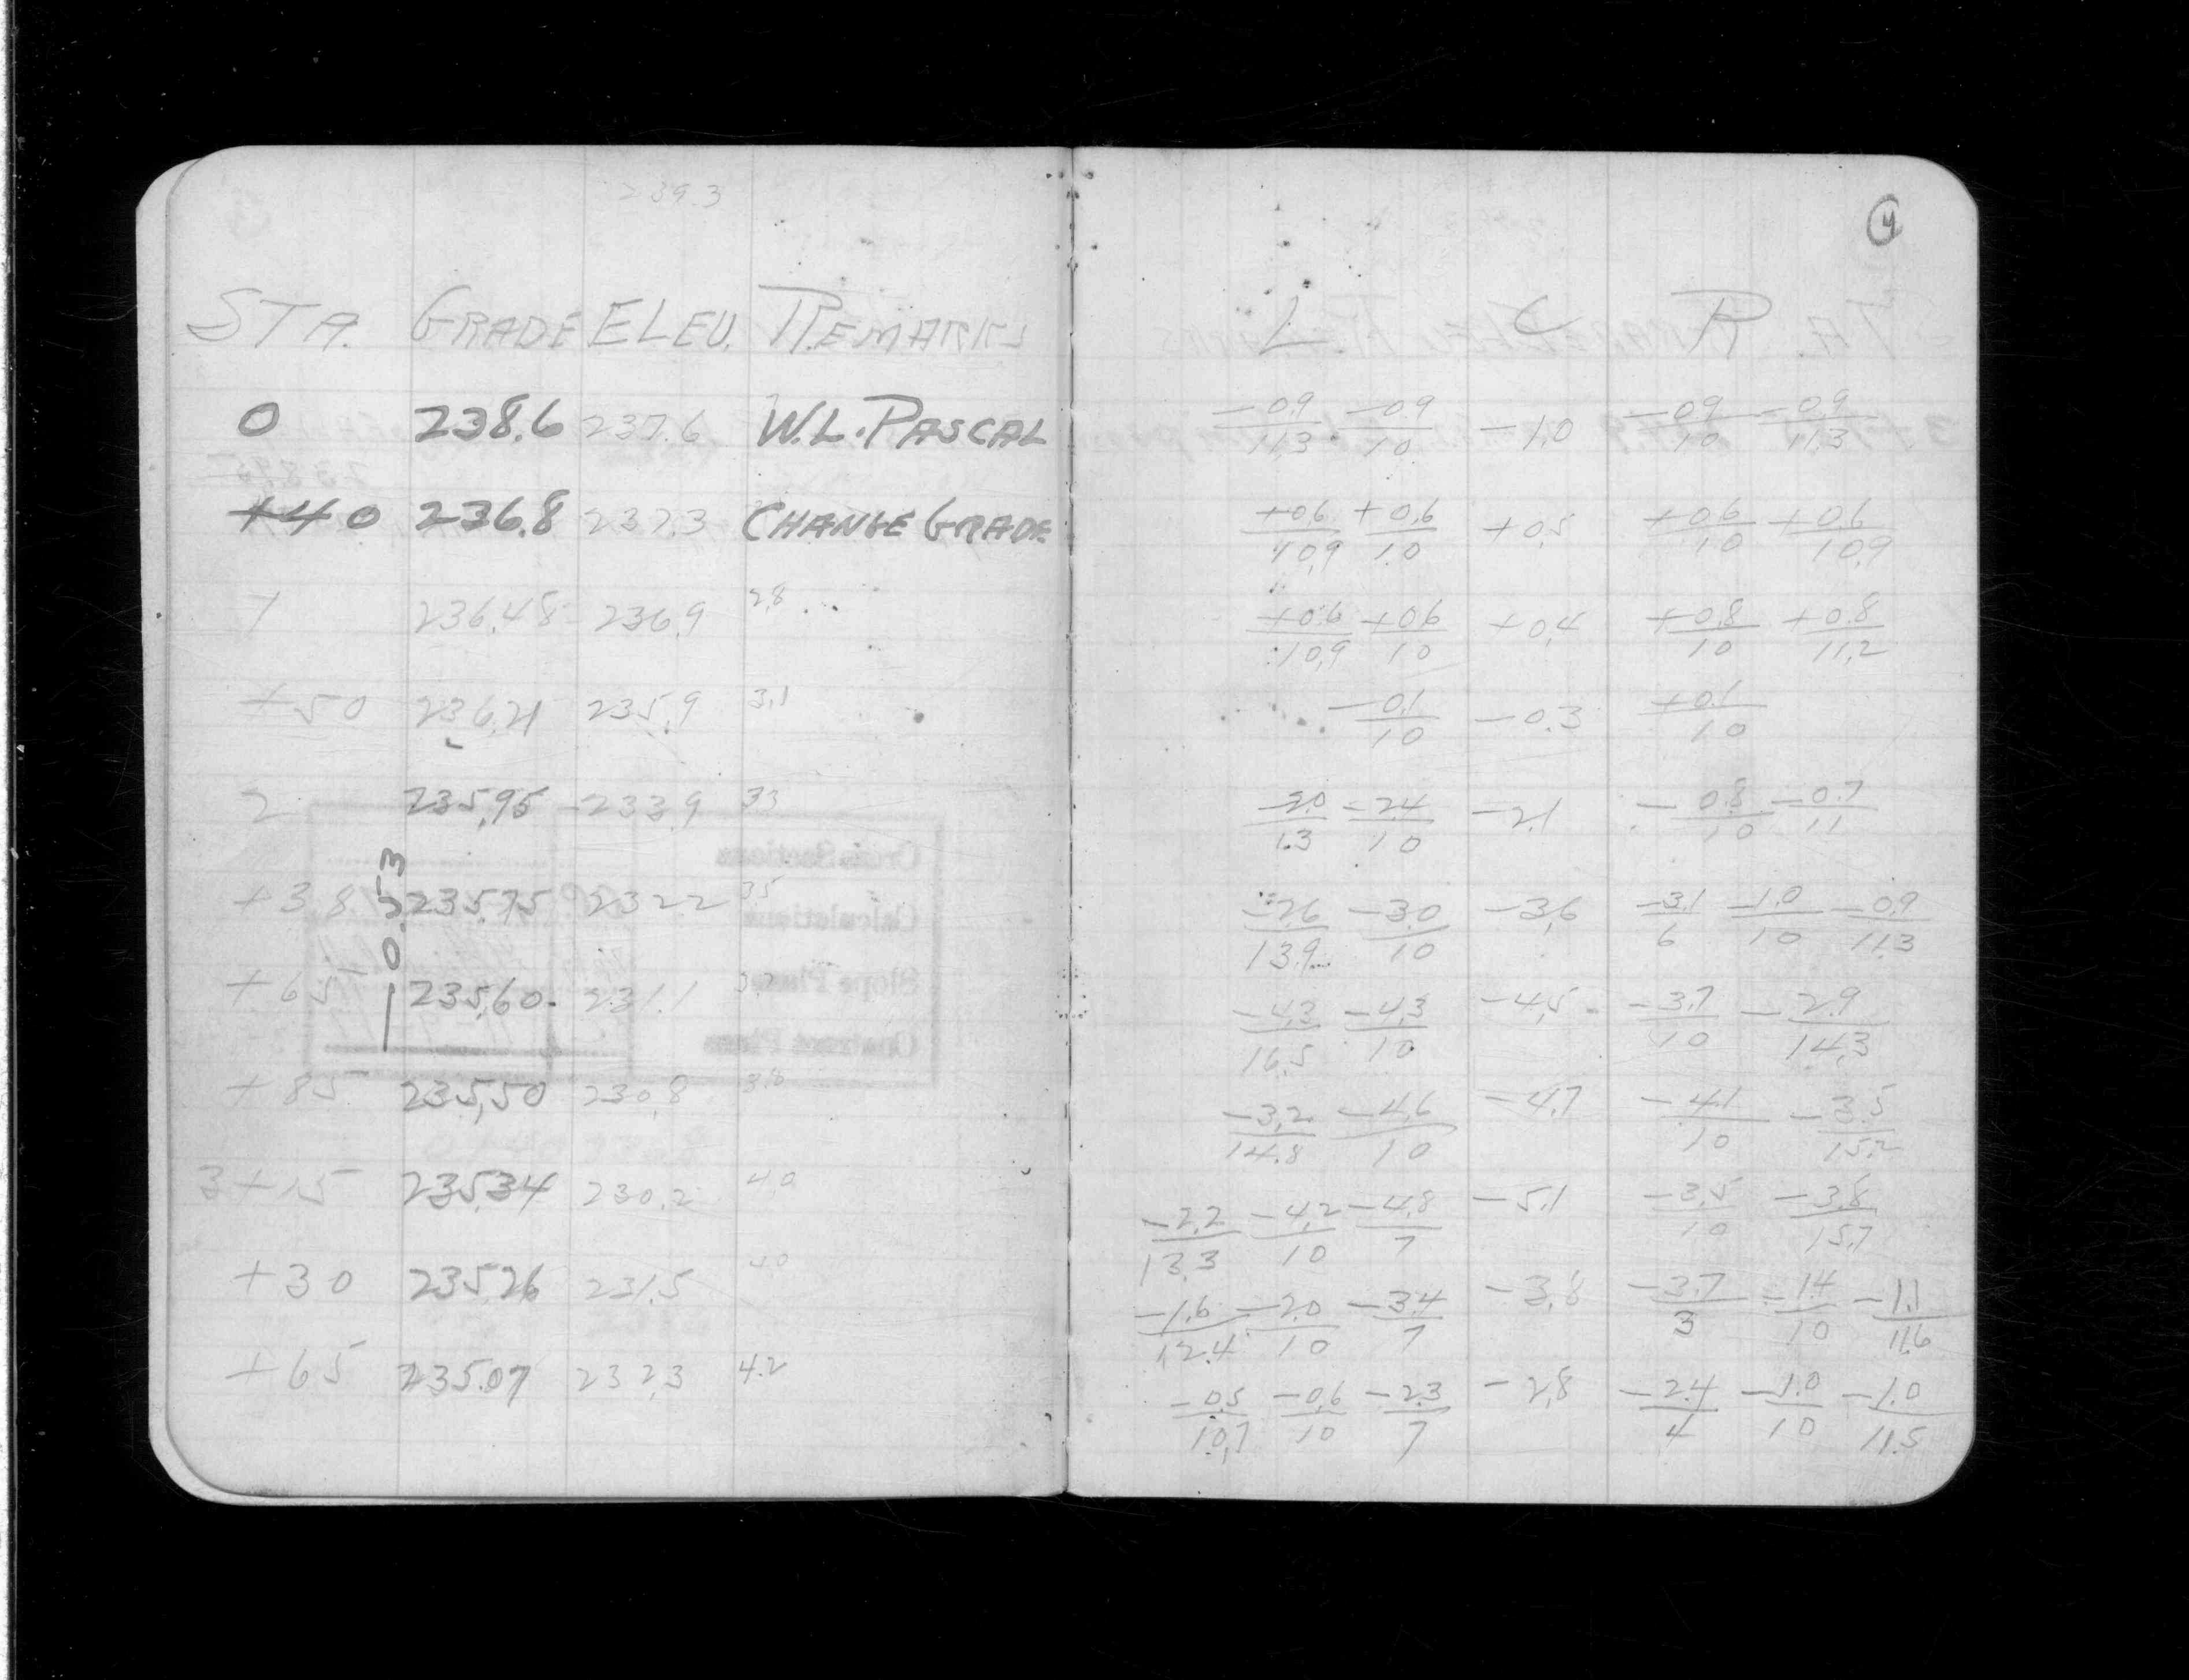 239.3
STA. GRADE ELEV. REMARKS
0 238.6 237.6 W.L. PASCAL
+40 236.8 237.3 CHANGE GRADE
1 236.48 236.9 2.8
+50 236.21 235.9 3.1
2 235.95 233.9 3.3
+38 235.75 232.2 3.5
+65 235.60 231.1
+85 235.50 230.8 3.8
3+15 235.34 230.2 4.0
+30 235.26 231.5
+65 235.07 232.3 4.2
-0.53
4
L C R
-0.9/11.3 -0.9/10 -1.0 -0.9/10 -0.9/11.3
+0.6/10.9 +0.6/10 +0.5 +0.6/10 +0.6/10.9
+0.6/10.9 +0.6/10 +0.4 +0.8/10 +0.8/11.2
-0.1/10 -0.3 +0.1/10
-2.0/13 -2.4/10 -2.1 -0.8/10 -0.7/11
-2.6/13.9 -3.0/10 -3.6 -3.1/6 -1.0/10 -0.9/11.3
-4.3/16.5 -4.3/10 -4.5 -3.7/10 -2.9/14.3
-3.2/14.8 -4.6/10 -4.7 -4.1/10 -3.5/15.2
-2.2/13.3 -4.2/10 -4.8/7 -5.1 -3.5/10 -3.8/15.7
-1.6/12.4 -2.0/10 -3.4/7 -3.8 -3.7/3 -1.4/10 -1.1/11.6
-0.5/10.7 -0.6/10 -2.3/7 -2.8 -2.4/4 -1.0/10 -1.0/11.5